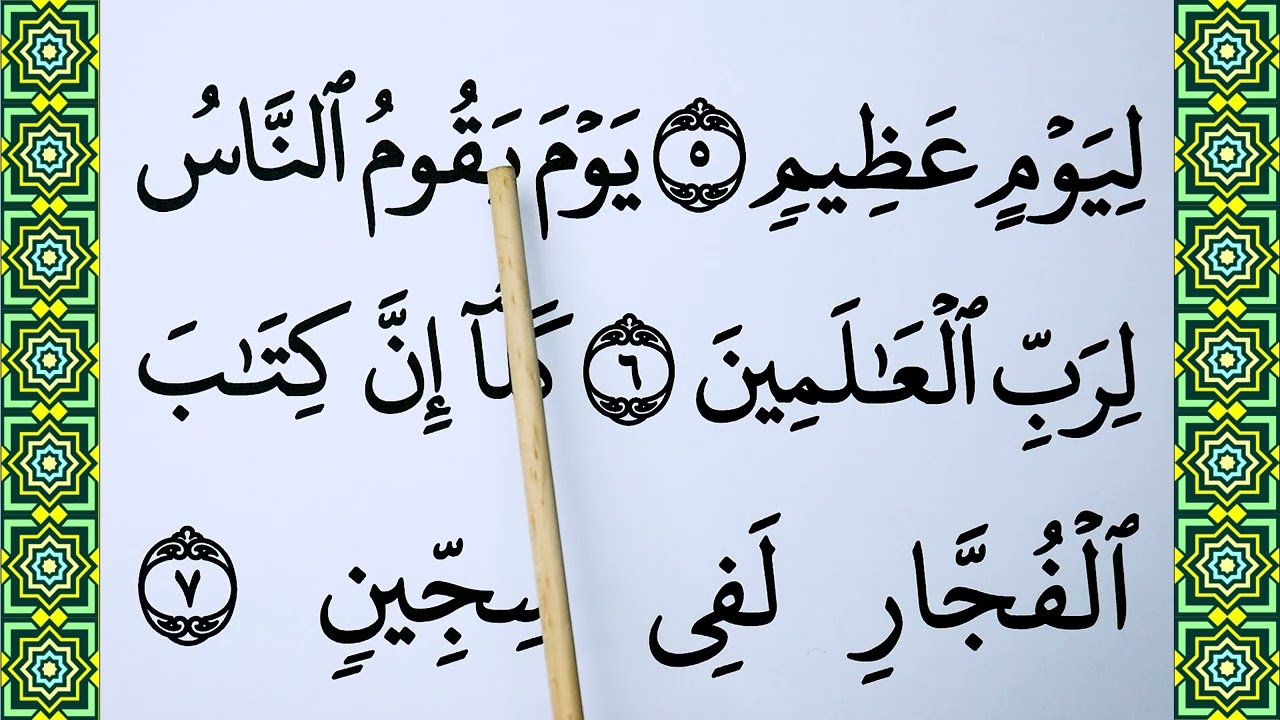 لِيَوْمٍ عَظِيمٍ ٥ يَوْمَ يَقُومُ ٱلنَّاسُ
لِرَبِّ ٱلْعَـٰلَمِينَ ٦ كَلَّآ إِنَّ كِتَـٰبَ
ٱلْفُجَّارِ لَفِى سِجِّينٍ ٧